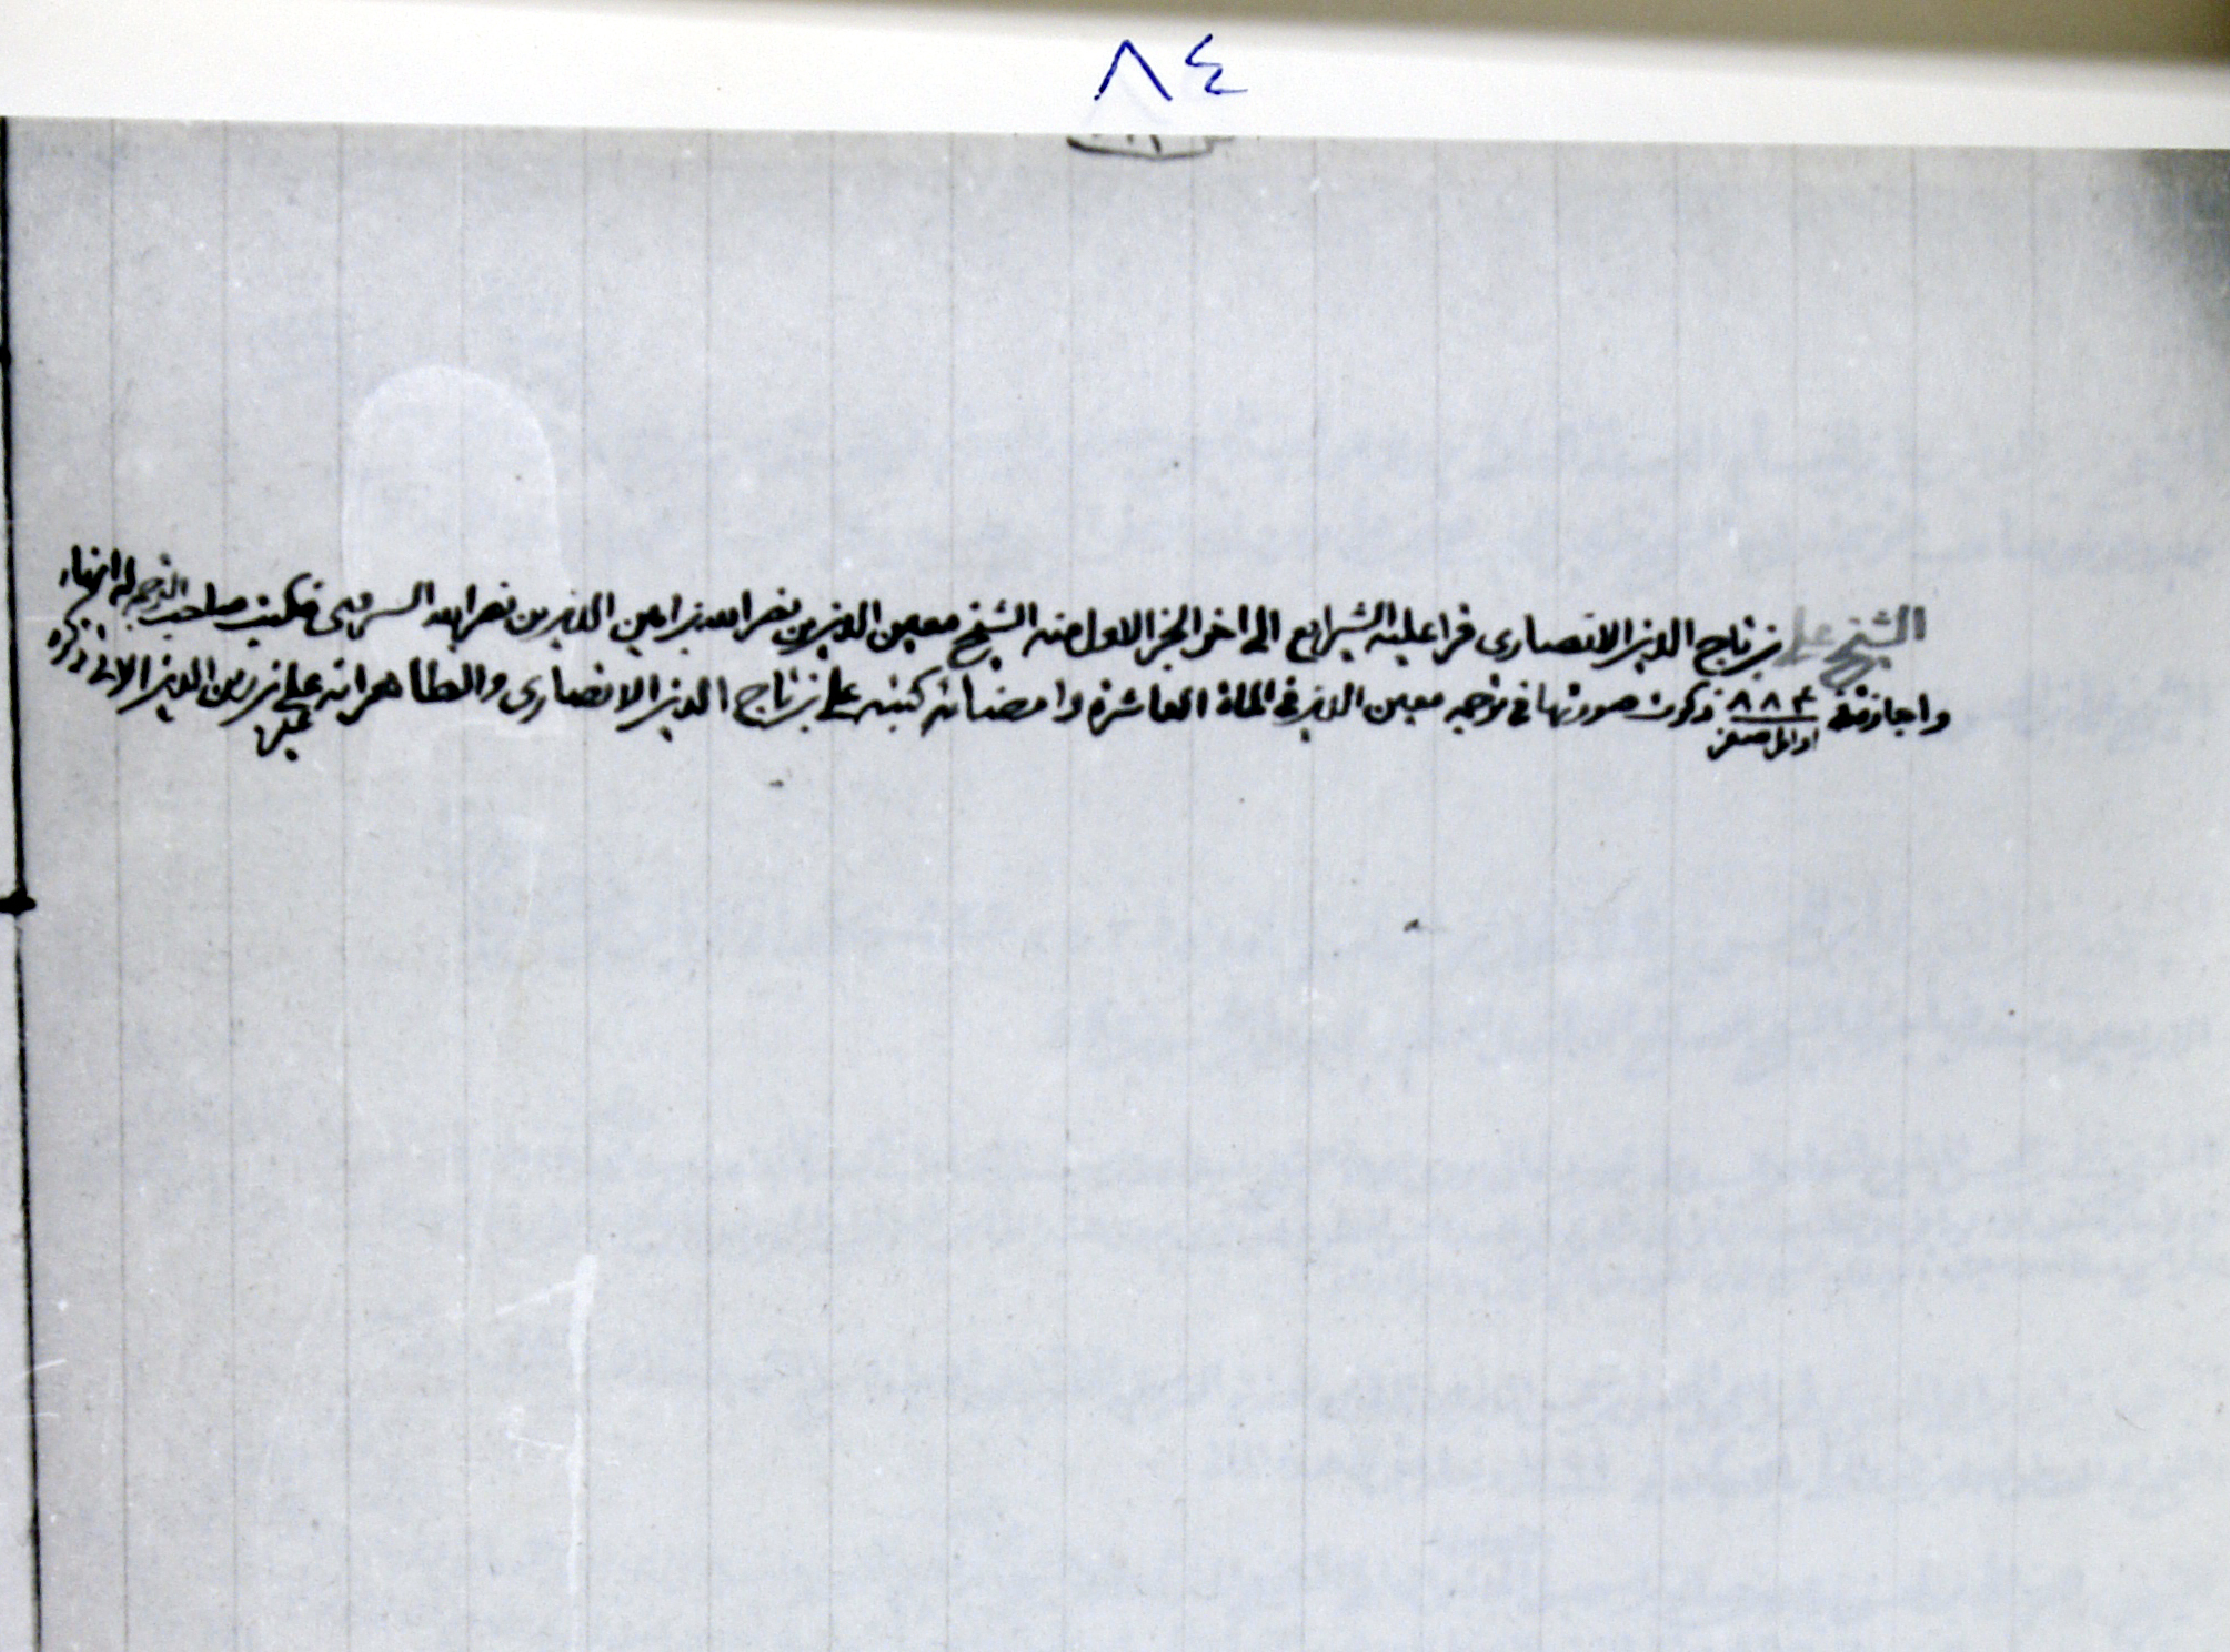 ٨٤
الشيخ علي بن تاج الدين الانصاری قرا عليه الشرايع الی اخر الجزء الاول منه الشيخ معين الدين بن نصر الله بن امين الدين بن نصر الله فكتب صاحب الترجمه له انهاء
واجازة فی ٨٨٤ ذكرت صورتها فی ترجمه معين الدين فی المائة العاشرة وامضائه كتبه علی بن تاج الدين الانصاری والظاهر انه علی بن زين الدين الاتی ذكره
اوائل صفر